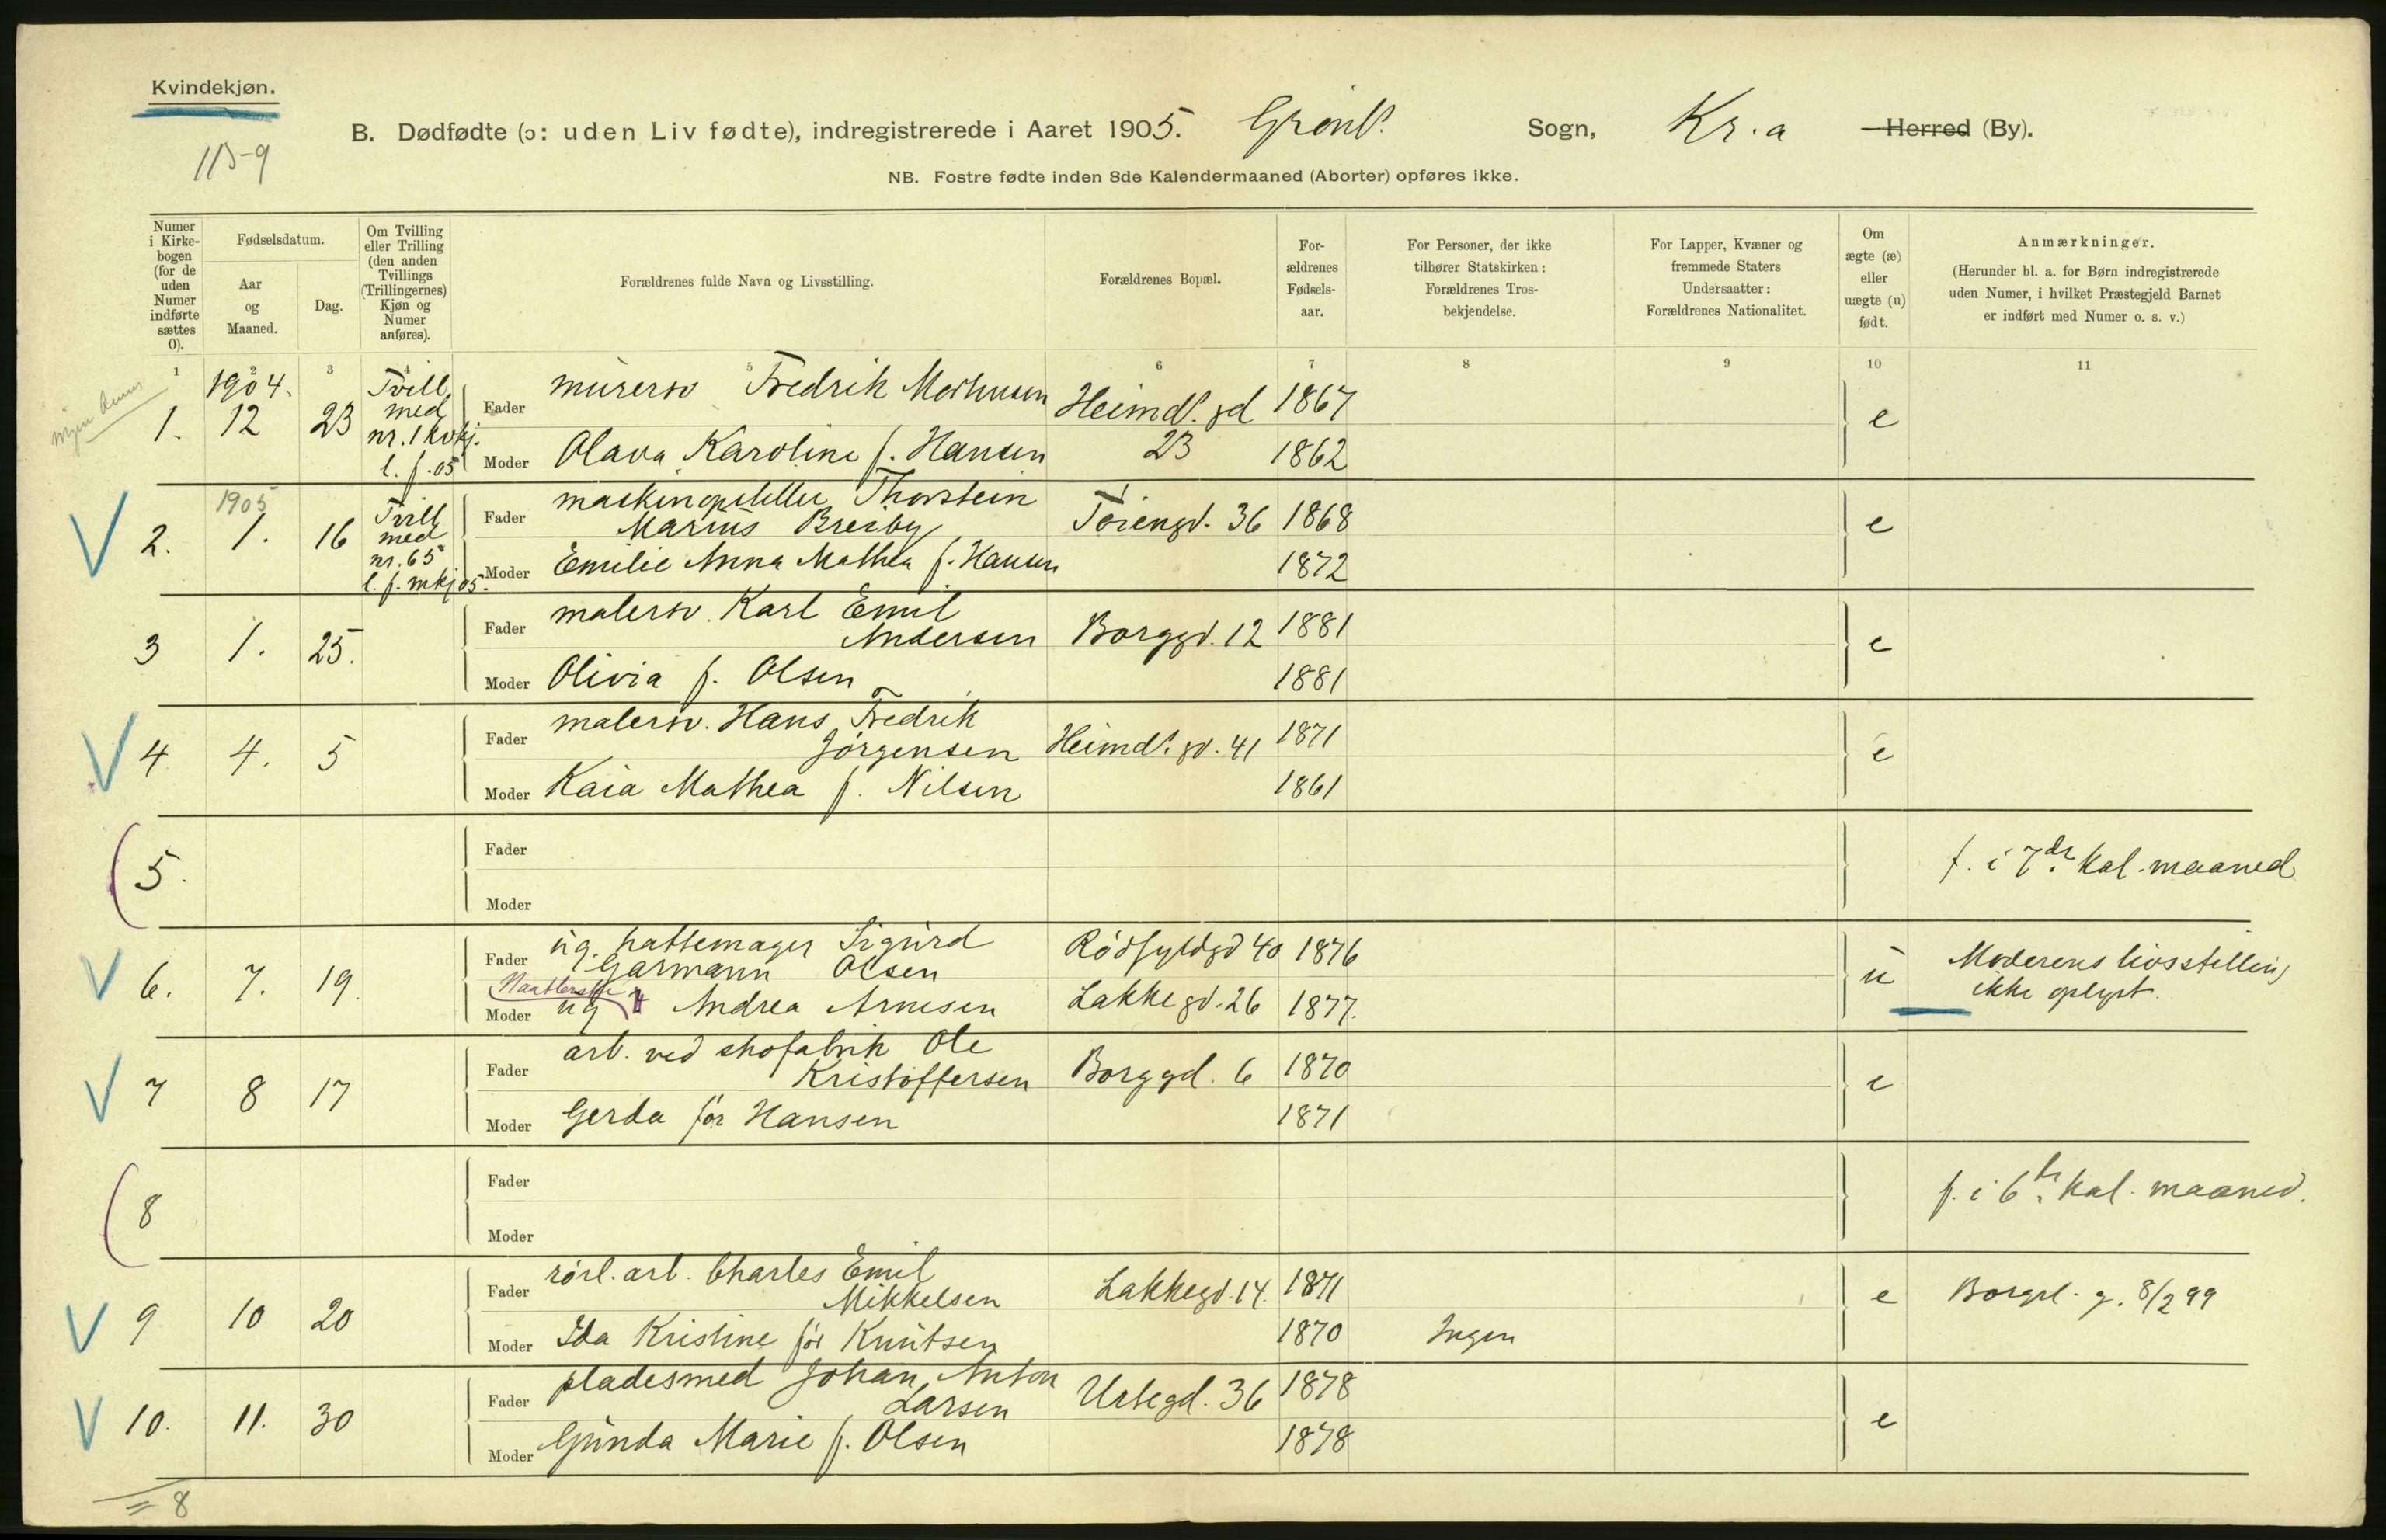 Kvindekjøn.
115-9
B. Dødfødte (ɔ: uden Liv fødte), indregistrerede i Aaret 1905. Grønl. Sogn, Kr.a Herred (By).
NB. Fostre fødte inden 8de Kalendermaaned (Aborter) opføres ikke.
Numer i Kirke-bogen (for de uden Numer indførte sættes 0).
Fødselsdatum.
Aar og Maaned.
Dag.
Om Tvilling eller Trilling (den anden Tvillings (Trillingernes) Kjøn og Numer anføres).
Forældrenes fulde Navn og Livsstilling.
Forældrenes Bopæl.
For-ældrenes Fødsels-aar.
For Personer, der ikke tilhører Statskirken: Forældrenes Tros-bekjendelse.
For Lapper, Kvæner og fremmede Staters Undersaatter: Forældrenes Nationalitet.
Om ægte (æ) eller uægte (u) født.
Anmærkninger.
(Herunder bl. a. for Børn indregistrerede uden Numer, i hvilket Præstegjeld Barnet er indført med Numer o. s. v.)
1 2 3 4 5 6 7 8 9 10 11
1. 1904. 12 23 Tvill. med nr. 1 kvkj. l. f. 05
Fader murersv Fredrik Heimdl. gd 23 1867 e
Moder Olava Karoline f. Hansen 1862
2. 1905 1. 16 Tvill. med nr. 65 l. f. mkj 05.
Fader maskinopstiller Thorstein
Marius Breiby Tøiengd. 36 1868 e
Moder Emilie Anna Mathea f. Hansen 1872
3 1. 25.
Fader malersv. Karl Emil
Andersen Borggd. 12 1881 e
Moder Olivia f. Olsen 1881
4 4. 5
Fader malersv. Hans Fredrik
Jørgensen Heimdl. gd. 41 1871 e
Moder Kaia Mathea f. Nilsen 1861
5.
Fader
Moder
f. i 7de kal. maaned
6. 7. 19.
Fader ug. hattemager Sigurd
Garmann Olsen Rødfyldgd 40 1876 u Moderens livsstilling
ikke oplyst.
Moder ug Andrea Arnesen Lakkegd. 26 1877.
7 8 17
Fader arb. ved skofabrik Ole
Kristoffersen Borggd. 6 1870 e
Moder Gerda før Hansen 1871
8
Fader
Moder
f. i 6te kal. maaned.
9 10 20
Fader rørl. arb. Charles Emil
Mikkelsen Lakkegd. 14. 1871 e Borgl. g. 8/2 99
Moder Ida Kristine før Knutsen 1870 Ingen
10. 11. 30
Fader pladesmed Johan Anton
Larsen Urtegd. 36 1878 e
Moder Gunda Marie f. Olsen 1878
= 8